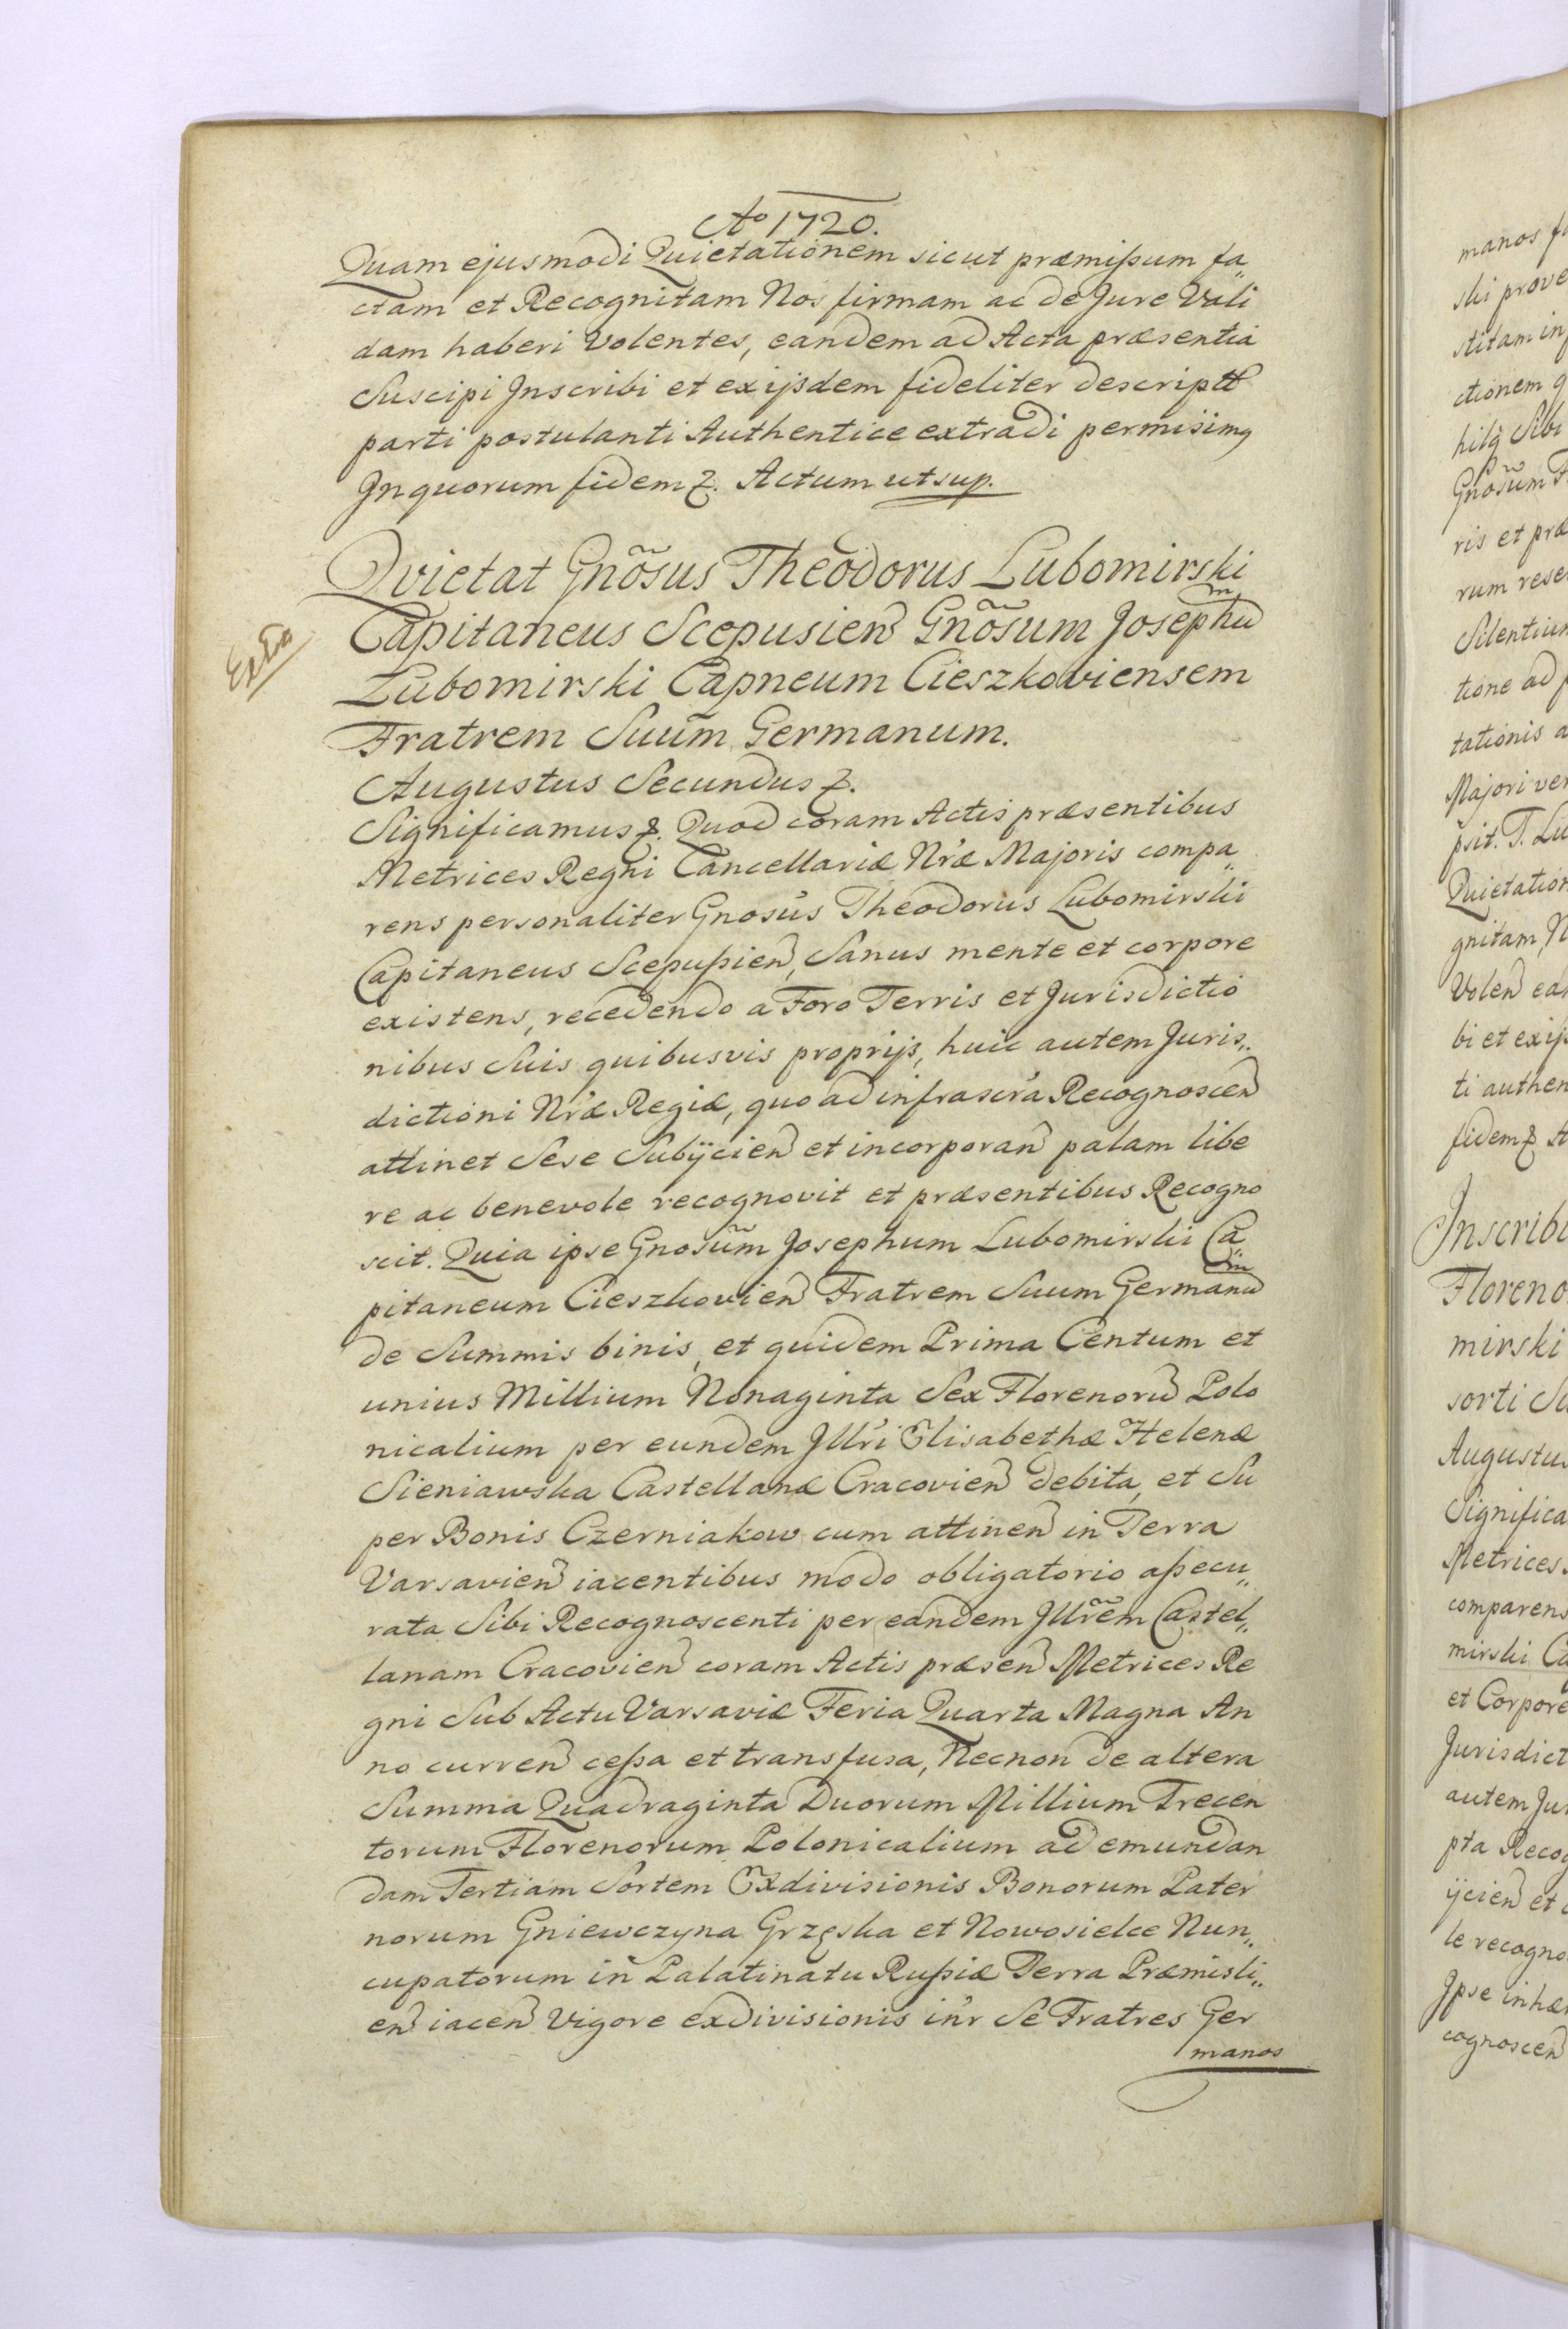 Ao 1720.
Quam ejusmodi Quietationem sicut præmißum fa„
ctam et Recognitam Nos firmam ac de Jure Vali
dam haberi volentes, eandem ad Acta præsentia
Suscipi Inscribi et exijsdem fideliter descriptt
parti postulanti Authentice extradi permisimq
Inquorum fidem &. Actum ut sup.
Extra
Qvietat Gnõsus Theodorus Lubomirski
Capitaneus Scepusien Gnõsum Josephum
Lubomirski Capneum Cieszkoviensem
Fratrem Suum Germanum.
Augustus Secundus &.
Significamus &. Quod coram Actis præsentibus
Metrices Regni Cancellariæ Nræ Majoris compa„
rens personaliter Gnosus Theodorus Lubomirski
Capitaneus Scepußien, Sanus mente et corpore
existens, recedendo a Foro Terris et Jurisdictio
nibus Suis quibusvis proprijs, huic autem Juris„
dictioni Nræ Regiæ, quo ad infrascra Recognoscen
attinet Sese Subijcien et incorporan palam libe
re ac benevole recognovit et præsentibus Recogno
scit. Quia ipse Gnosum Josephum Lubomirski Ca„
pitaneum Cieszkovien Fratrem Suum Germanum
de Summis binis, et quidem Prima Centum et
unius Millium Nonaginta Sex Florenorum Polo
nicalium per eundem Illri Elisabethæ Helenæ
Sieniawska Castellanæ Cracovien debita, et Su
per Bonis Czerniakow cum attinen in Terra
Varsavien iacentibus modo obligatorio aßecu„
rata Sibi Recognoscenti per eandem Illrem Castel„
lanam Cracovien coram Actis præsen Metrices Re
gni Sub Actu Varsaviæ Feria Quarta Magna An
no curren ceßa et transfusa, Necnon de altera
Summa Quadraginta Duorum Millium Trecen
torum Florenorum Polonicalium ad emundan
dam Tertiam Sortem Exdivisionis Bonorum Pater
norum Gniewczyna Grzęska et Nowosielce Nun„
cupatorum in Palatinatu Rußiæ Terra Præmisli„
en iacen Vigore exdivisionis inr Se Fratres Ger
manos
manos
ski prove
stitam in
ctionem
hilq Sibi
Gnosum
ris et præ
rum rese
Silentium
tione ad
tationis a
Majori ver
psit. T. Lu
Quietation
gnitam, N
Volen ean
bi et exijs
ti authen
fidem &
Inscribi
Floreno
mirski
sorti Su
Augustus
Significa
Metrices
comparens
mirski Ca
et Corpore
Jurisdict
autem Jur
pta Recog
ijcien et
le recogno
Ipse inhæ
cognoscen